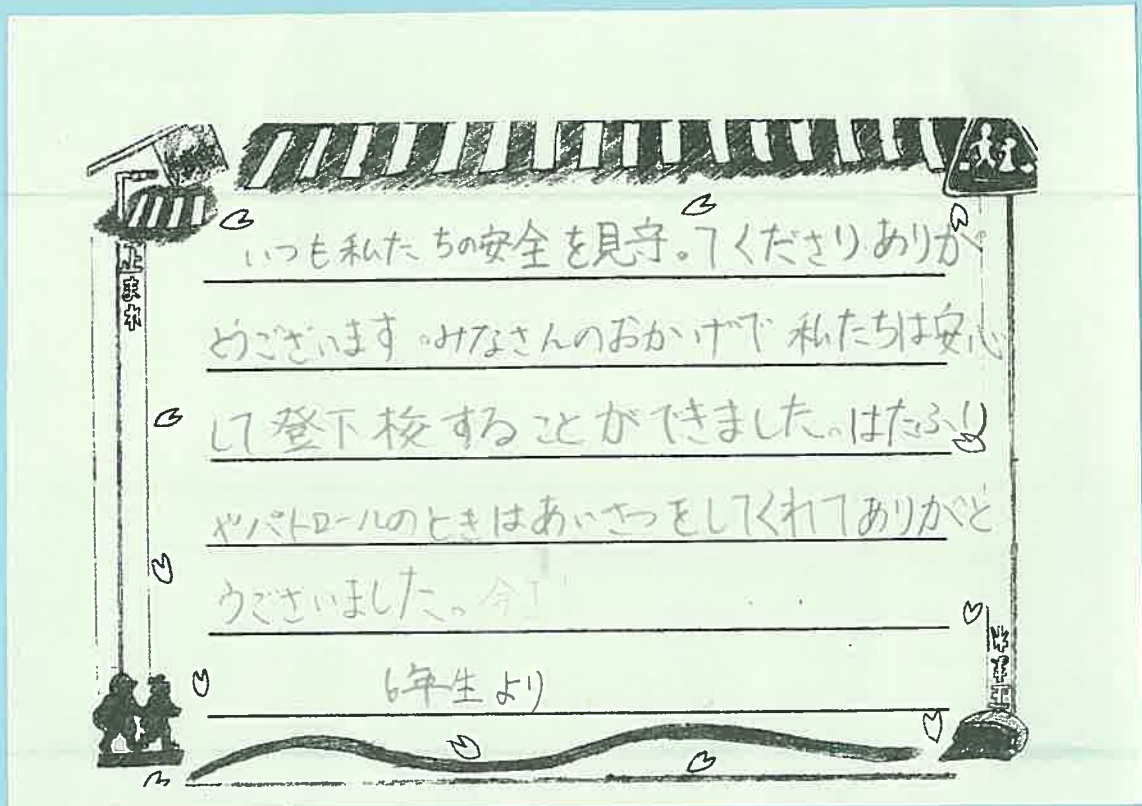 止まれ
いつも私たちの安全を見守ってくださりありが
とうございます。みなさんのおかげで 私たちは安心
して登下校することができました。はたふり
やパトロールのときはあいさつをしてくれてありがと
うございました。
6年生より